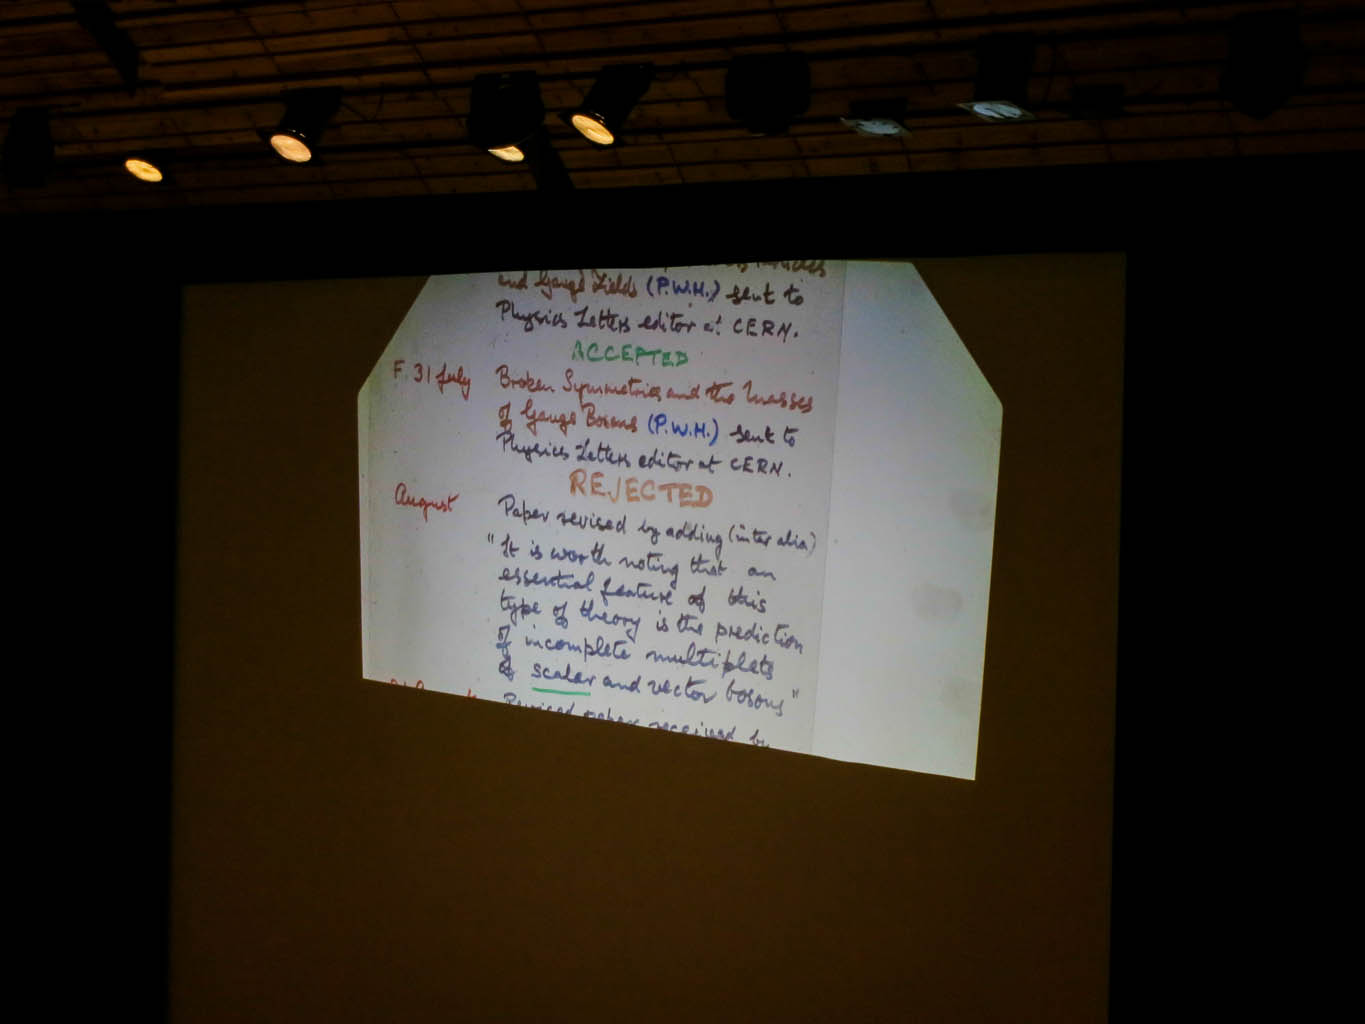 and Gauge Fields (P.W.H.) sent to
Physics Letters editor at CERN.
ACCEPTED
F. 31 July Broken Symmetries and the Masses
of Gauge Bosons (P.W.H.) sent to
Physics Letters editor at CERN.
REJECTED
August Paper revised by adding (inter alia)
"It is worth noting that an
essential feature of this
type of theory is the prediction
of incomplete multiplets
of scalar and vector bosons"
Revised paper received by